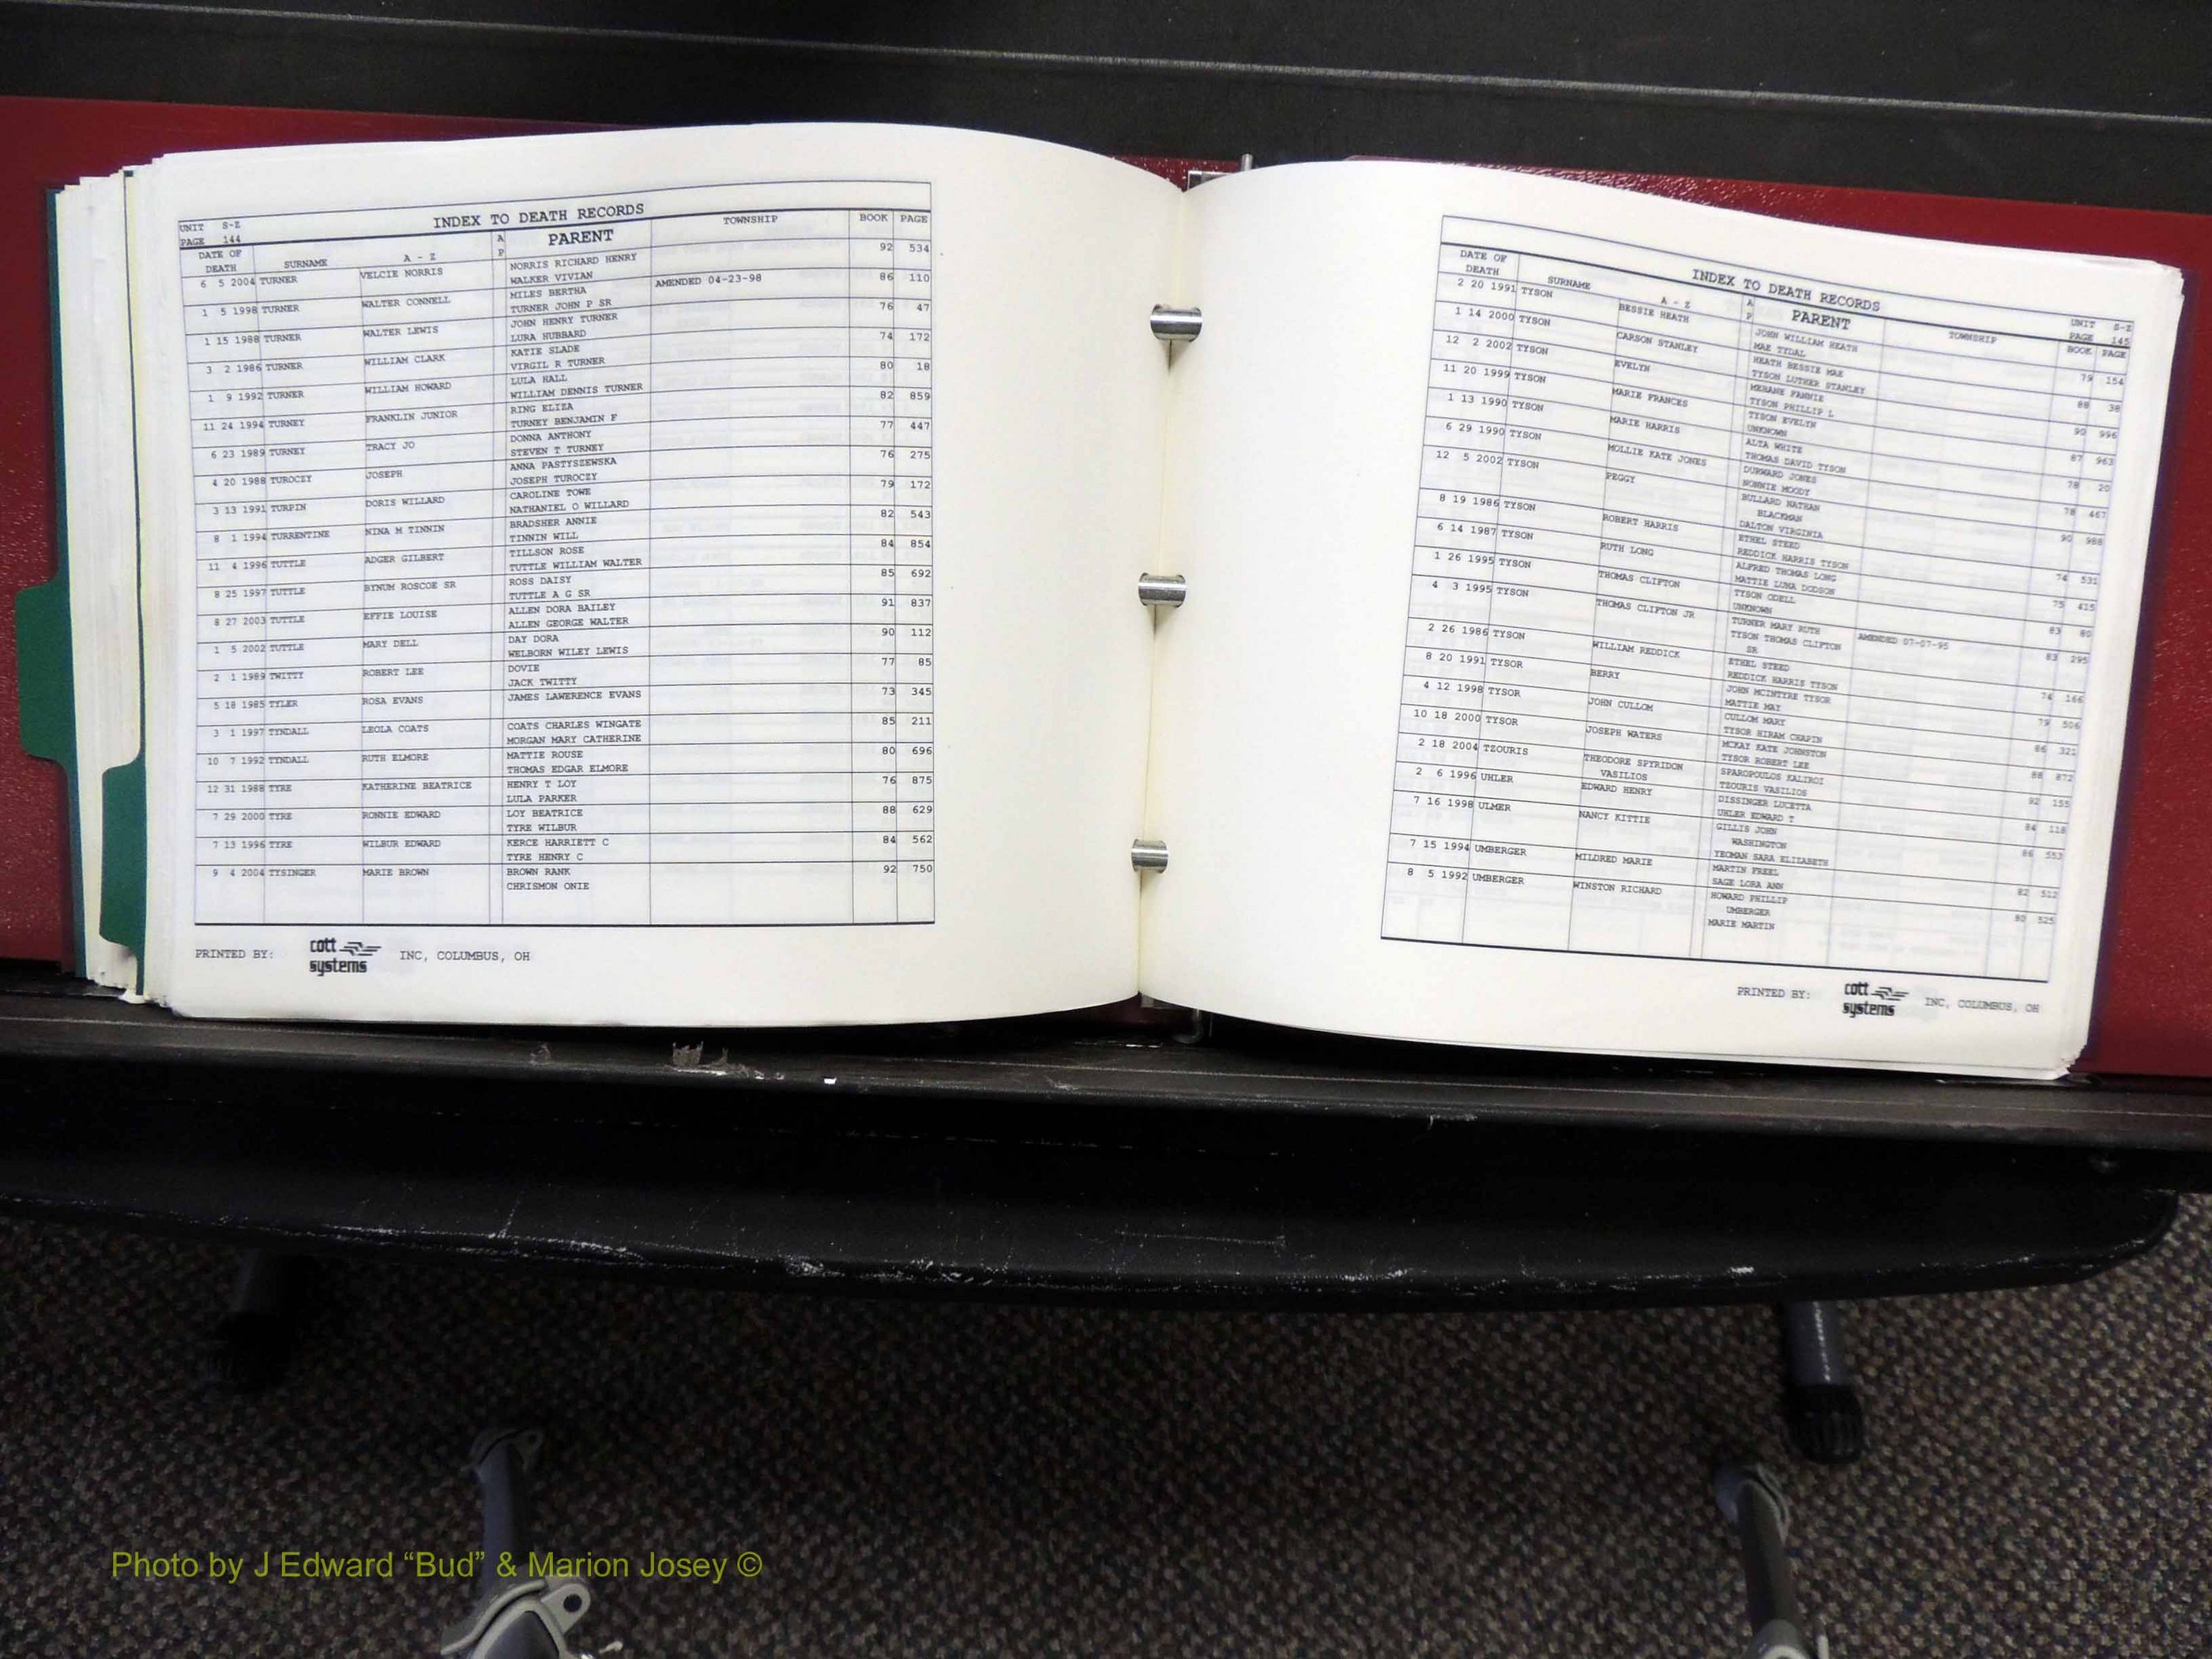 UNIT S-Z
PAGE 144
INDEX TO DEATH RECORDS
DATE OF DEATH SURNAME A - Z A P PARENT TOWNSHIP BOOK PAGE
6 5 2004 TURNER VELCIE NORRIS NORRIS RICHARD HENRY 92 534
WALKER VIVIAN
1 5 1998 TURNER WALTER CONNELL MILES BERTHA AMENDED 04-23-98 86 110
TURNER JOHN P SR
1 15 1988 TURNER WALTER LEWIS JOHN HENRY TURNER 76 47
LURA HUBBARD
3 2 1986 TURNER WILLIAM CLARK KATIE SLADE 74 172
VIRGIL R TURNER
1 9 1992 TURNER WILLIAM HOWARD LULA HALL 80 18
WILLIAM DENNIS TURNER
11 24 1994 TURNEY FRANKLIN JUNIOR RING ELIZA 82 859
TURNEY BENJAMIN F
6 23 1989 TURNEY TRACY JO DONNA ANTHONY 77 447
STEVEN T TURNEY
4 20 1988 TUROCZY JOSEPH ANNA PASTYSZEWSKA 76 275
JOSEPH TUROCZY
3 13 1991 TURPIN DORIS WILLARD CAROLINE TOWE 79 172
NATHANIEL O WILLARD
8 1 1994 TURRENTINE NINA M TINNIN BRADSHER ANNIE 82 543
TINNIN WILL
11 4 1996 TUTTLE ADGER GILBERT TILLSON ROSE 84 854
TUTTLE WILLIAM WALTER
8 25 1997 TUTTLE BYNUM ROSCOE SR ROSS DAISY 85 692
TUTTLE A G SR
8 27 2003 TUTTLE EFFIE LOUISE ALLEN DORA BAILEY 91 837
ALLEN GEORGE WALTER
1 5 2002 TUTTLE MARY DELL DAY DORA 90 112
WELBORN WILEY LEWIS
2 1 1989 TWITTY ROBERT LEE DOVIE 77 85
JACK TWITTY
5 18 1985 TYLER ROSA EVANS JAMES LAWERENCE EVANS 73 345
3 1 1997 TYNDALL LEOLA COATS COATS CHARLES WINGATE 85 211
MORGAN MARY CATHERINE
10 7 1992 TYNDALL RUTH ELMORE MATTIE ROUSE 80 696
THOMAS EDGAR ELMORE
12 31 1988 TYRE KATHERINE BEATRICE HENRY T LOY 76 875
LULA PARKER
7 29 2000 TYRE RONNIE EDWARD LOY BEATRICE 88 629
TYRE WILBUR
7 13 1996 TYRE WILBUR EDWARD KERCE HARRIETT C 84 562
TYRE HENRY C
9 4 2004 TYSINGER MARIE BROWN BROWN RANK 92 750
CHRISMON ONIE
PRINTED BY: cott systems INC, COLUMBUS, OH
INDEX TO DEATH RECORDS
UNIT S-Z
PAGE 145
DATE OF DEATH SURNAME A - Z A P PARENT TOWNSHIP BOOK PAGE
2 20 1991 TYSON BESSIE HEATH JOHN WILLIAM HEATH 79 154
MAE TYDAL
1 14 2000 TYSON CARSON STANLEY HEATH BESSIE MAE 88 38
TYSON LUTHER STANLEY
12 2 2002 TYSON EVELYN MEBANE FANNIE 90 996
TYSON PHILLIP L
11 20 1999 TYSON MARIE FRANCES TYSON EVELYN 87 963
UNKNOWN
1 13 1990 TYSON MARIE HARRIS ALTA WHITE 78 20
THOMAS DAVID TYSON
6 29 1990 TYSON MOLLIE KATE JONES DURWARD JONES 78 467
NONNIE MOODY
12 5 2002 TYSON PEGGY BULLARD NATHAN 90 988
BLACKMAN
DALTON VIRGINIA
8 19 1986 TYSON ROBERT HARRIS ETHEL STEED 74 531
REDDICK HARRIS TYSON
6 14 1987 TYSON RUTH LONG ALFRED THOMAS LONG 75 415
MATTIE LUMA DODSON
1 26 1995 TYSON THOMAS CLIFTON TYSON ODELL 83 80
UNKNOWN
4 3 1995 TYSON THOMAS CLIFTON JR TURNER MARY RUTH AMENDED 07-07-95 83 295
TYSON THOMAS CLIFTON
SR
2 26 1986 TYSON WILLIAM REDDICK ETHEL STEED 74 166
REDDICK HARRIS TYSON
8 20 1991 TYSOR BERRY JOHN MCINTYRE TYSOR 79 506
MATTIE MAY
4 12 1998 TYSOR JOHN CULLOM CULLOM MARY 86 321
TYSOR HIRAM CHAPIN
10 18 2000 TYSOR JOSEPH WATERS MCKAY KATE JOHNSTON 88 872
TYSOR ROBERT LEE
2 18 2004 TZOURIS THEODORE SPYRIDON SPAROPOULOS KALIROI 92 155
VASILIOS TZOURIS VASILIOS
2 6 1996 UHLER EDWARD HENRY DISSINGER LUCETTA 84 118
UHLER EDWARD T
7 16 1998 ULMER NANCY KITTIE GILLIS JOHN 86 553
WASHINGTON
YEOMAN SARA ELIZABETH
7 15 1994 UMBERGER MILDRED MARIE MARTIN FREEL 82 512
SAGE LORA ANN
8 5 1992 UMBERGER WINSTON RICHARD HOWARD PHILLIP 80 525
UMBERGER
MARIE MARTIN
PRINTED BY: cott systems INC, COLUMBUS, OH
Photo by J Edward “Bud” & Marion Josey ©